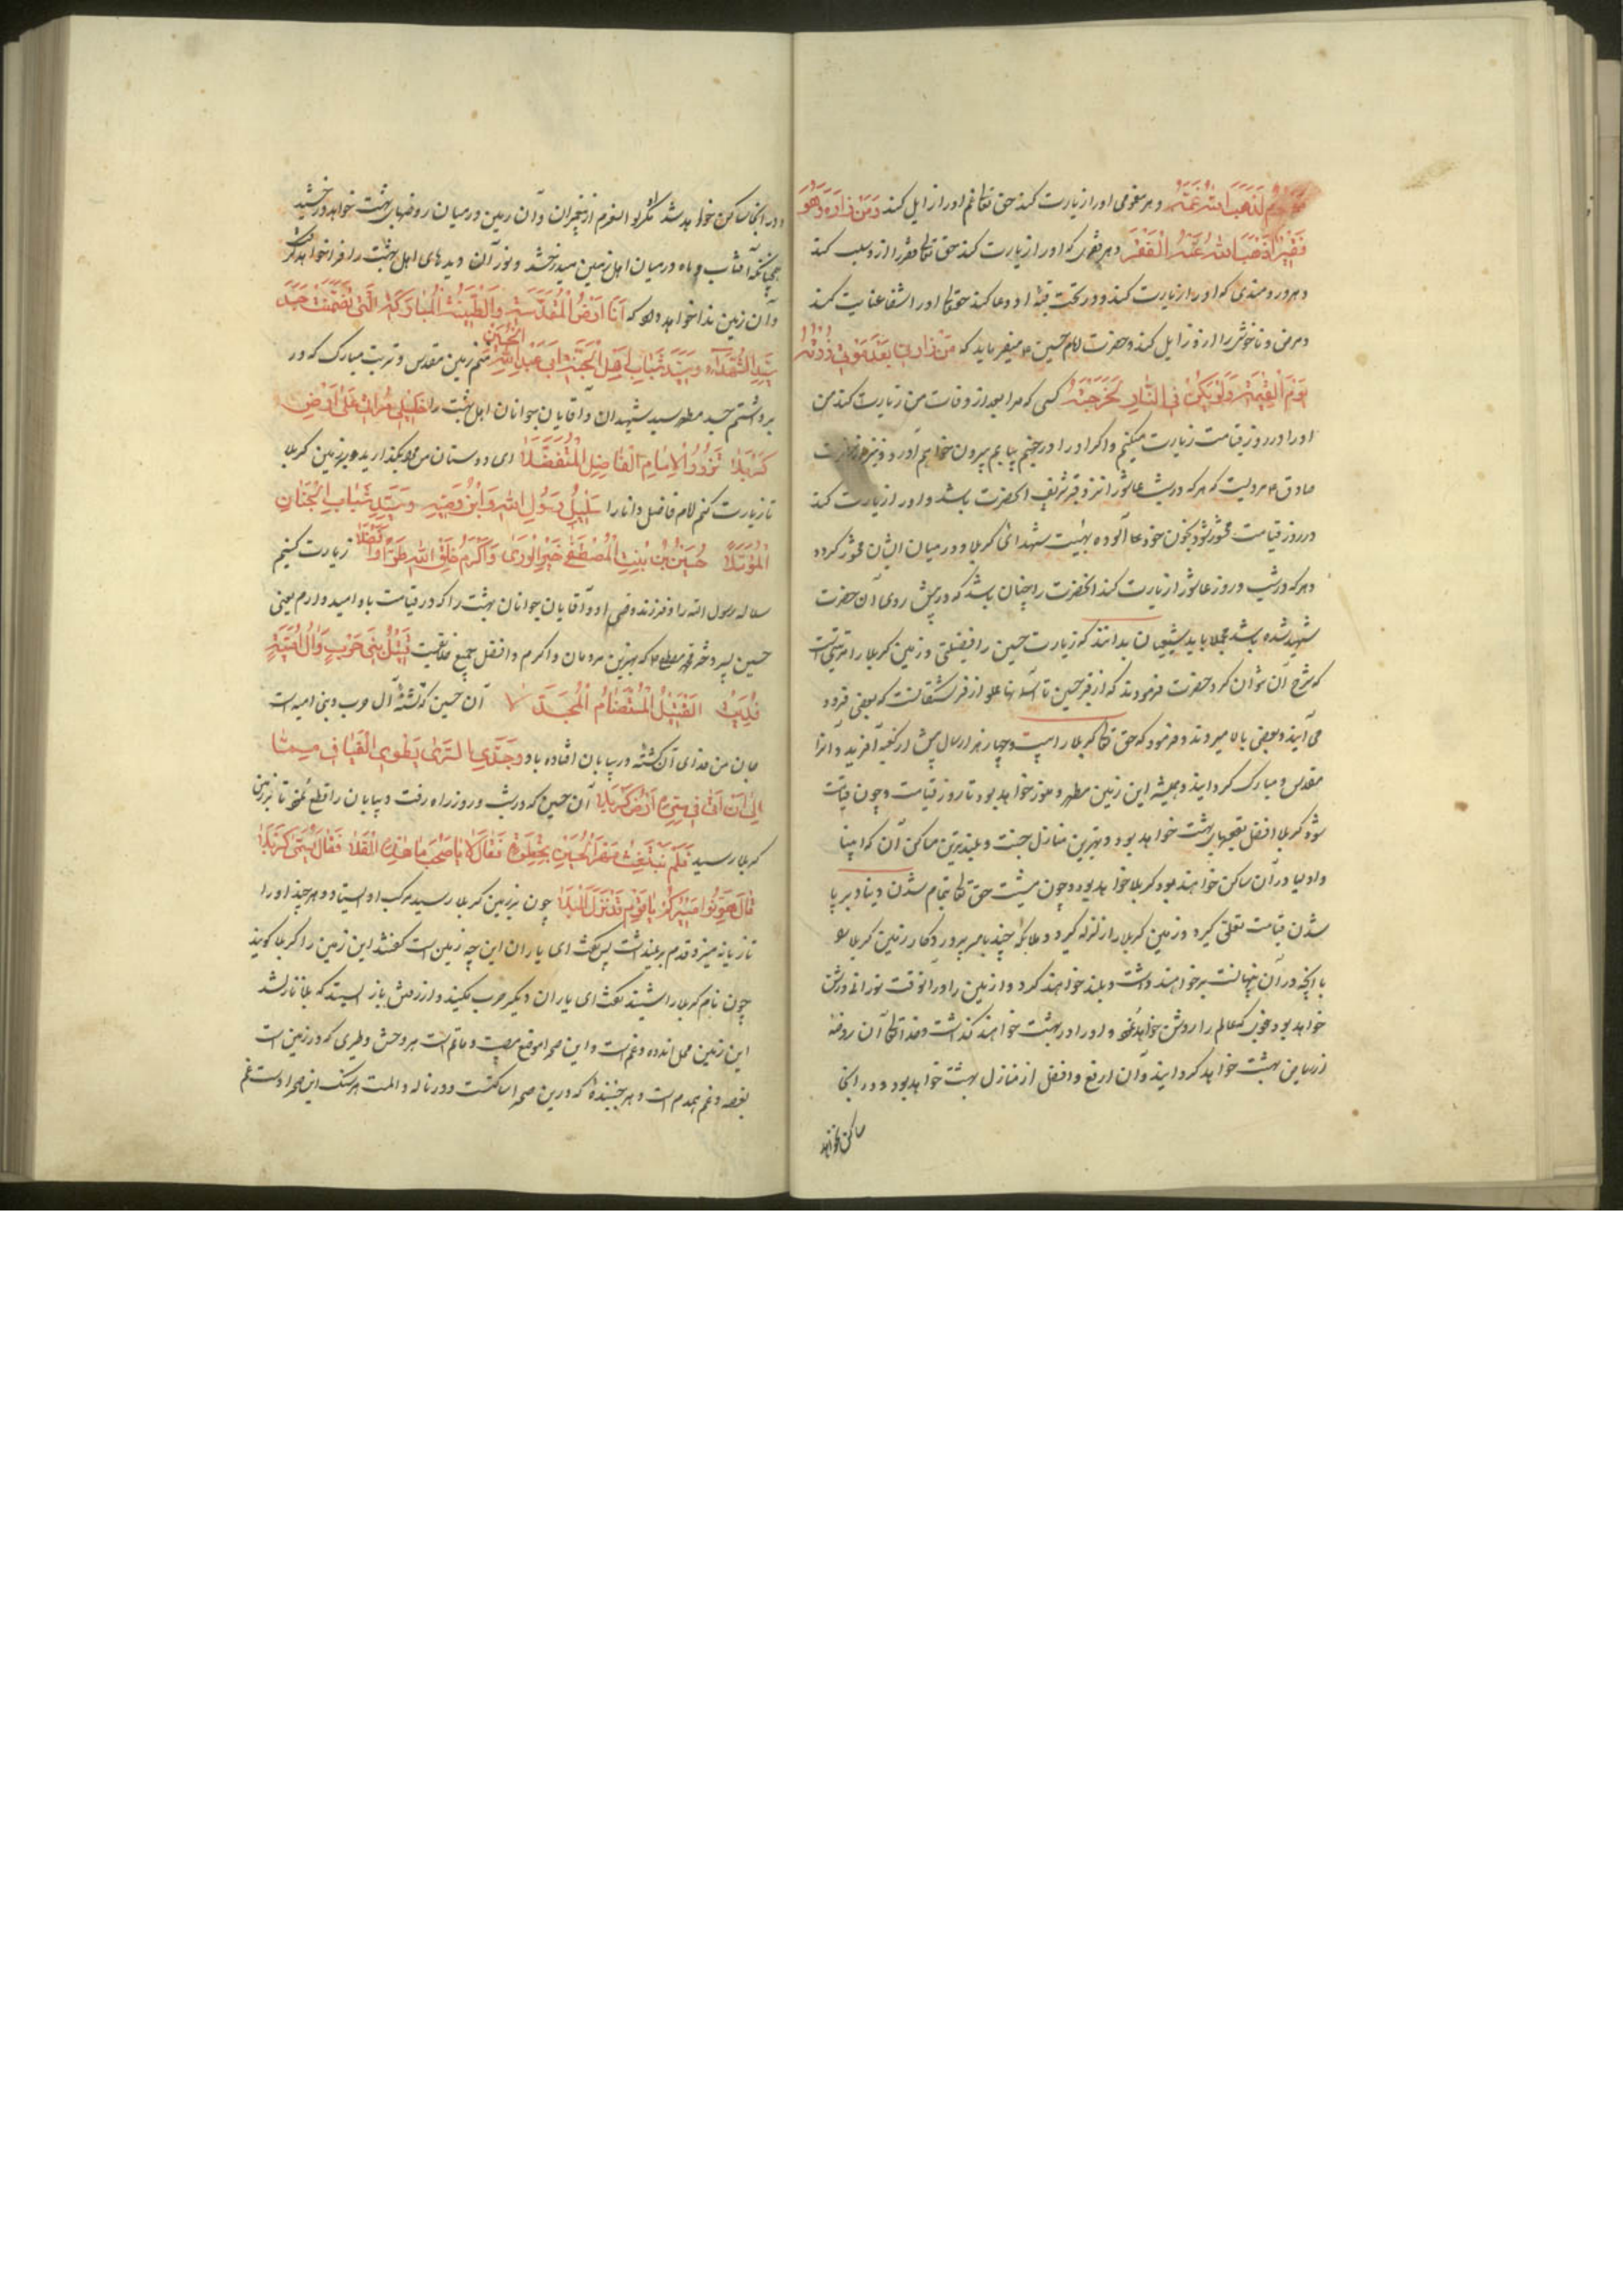 لَذَهَبَ اللهُ غَمَّهُ و هر مغمومی او را زیارت کند حق تعالی غم او را زایل کند وَمَنْ زارَهُ وَهُوَ
فَقیرًا ذَهَبَ اللهُ عَنْهُ الْفَقْرَ و هر فقیری که او را زیارت کند حق تعالی فقر را از و سلب کند
و هر دردمندی که او را زیارت کند و در تحت قبهٔ او دعا کند حقتعالی او را شفا عنایت کند
و مرض و ناخوشی را از و زایل کند و حضرت امام حسین ع میفرماید که مَنْ زارَنی بَعْدَ مَوْتی زُرْتُهُ
یَوْمَ الْقِیٰمَةِ وَلَوْ یَکُنْ فِی النّارِ لَخَرَجْتُهُ کسی که مرا بعد از وفات من زیارت کند من
او را در روز قیامت زیارت میکنم و اگر او را در جهنم بیابم بیرون خواهم آورد و نیز از حضرت
صادق ع مرویست که هر که در شب عاشورا نزد قبر شریف آنحضرت باشد و او را زیارت کند
در روز قیامت محشور شود بخون خود آلوده بهیئت شهدای کربلا و در میان ایشان محشور گردد
و هر که در شب و روز عاشورا زیارت کند آنحضرت را چنان باشد که در پیش روی آن حضرت
شهید شده باشد مجملا باید شیعیان بدانند که زیارت حسین را فضیلتی و زمین کربلا را مرتبتی است
که شرح آن نتوان کرد حضرت فرمودند که از قبر حسین تا آسمانها مملو از فرشتگانست که بعضی فرود
می آیند و بعضی بالا میروند و فرمود که حق تعالی کربلا را بیست و چهار هزار سال پیش از کعبه آفرید و آنرا
مقدس و مبارک گردانید و همیشه این زمین مطهر و منور خواهد بود تا روز قیامت و چون قیامت
شود کربلا افضل بقعهای بهشت خواهد بود و بهترین منازل جنت و بلندترین مساکن آن که انبیا
و اولیا در آن ساکن خواهند بود کربلا خواهد بود و چون مشیت حق تعالی بتمام شدن دنیا و بر پا
شدن قیامت تعلق گیرد و زمین کربلا را زلزله گیرد و ملائکهٔ چند بامر پروردگار زمین کربلا را
با آنچه در آن پنهانست بر خواهند داشت و بلند خواهند کرد و از زمین را در آنوقت نورانی و روشن
خواهد بود که عالم را روشن خواهد نمود و او را در بهشت خواهند گذاشت و خدا تعالی آن روضه
از ریاض بهشت خواهد گردانید و آن ارفع و افضل از منازل بهشت خواهد بود و در آنجا
ساکن نخواهد
و در آنجا ساکن نخواهد شد مگر اولوالعزم از پیغمبران و آن زمین در میان روضهای بهشت خواهد درخشید
چنانکه آفتاب و ماه در میان اهل زمین میدرخشد و نور آن دیدهای اهل بهشت را فرا خواهد گرفت
و آن زمین ندا خواهد داد که اَنَا اَرْضُ الْمُقَدَّسَةِ وَالطَّیِّبَةُ الْمُبارَکَةُ الَّتی تَضَمَّنَتْ جَسَدَ
سَیِّدِ الشُّهَدآءِ وَسَیِّدِ شَبابِ اَهْلِ الْجَنَّةِ اَبی عَبْدِ اللهِ الْحُسَیْنِ منم زمین مقدس و تربت مبارک که در
برداشتم جسد مطهر سید شهیدان و آقایان جوانان اهل بهشت را خَلیلَیَّ مُرّابی عَلیٰ اَرْضِ
کَرْبَلا نَزُورُ الْاِمامَ الْفاضِلَ الْمُتَفَضِّلا ای دوستان من بگذارید بر زمین کربلا
تا زیارت کنم امام فاضل دانا را سَلیلُ رَسُولِ اللهِ وَابْنُ وَصِیِّهِ وَسَیِّدِ شَبابِ الْجِنانِ
الْمُؤَمَّلا حُسَیْنُ بْنُ بِنْتِ الْمُصْطَفیٰ خَیْرِ الْوَریٰ وَاَکْرَمُ خَلْقِ اللهِ طُرًّا وَاَفْضَلا زیارت کنیم
سلاله رسول الله را و فرزند وصی او و آقایان جوانان بهشت را که در قیامت باو امید وارم یعنی
حسین پسر دختر مصطفی که بهترین مردمان و اکرم و افضل جمیع خلایقست قَتیلُ بَنی حَرْبٍ وَآلِ اُمَیَّةٍ
فَدَیْتُ الْقَتیلَ الْمُسْتَضامَ الْمُجَدَّلا آن حسین که کشتهٔ آل حرب و بنی امیه است
جان من فدای آن کشته در بیابان افتاده باد وَجَدَّ السُّریٰ یَطْوِی الْفَیافی
اِلیٰ اَنْ اَتیٰ فی سَیْرِهِ اَرْضَ کَرْبَلا آن حسین که در شب و روز راه رفت و بیابان را قطع نمود تا بزمین
کربلا رسید فَلَمْ یَنْبَعِثْ مُهْرُ الْحُسَیْنِ بِخَطْوَةٍ فَقالَ لا یا صَحْبُ ما هٰذِهِ الْفَلا فَقالُوا تُسَمّیٰ کَرْبَلا
قالَ هَوِّنُوا مَسیرَکُمْ یا قَوْمُ قَدْ نَزَلَ الْبَلا چون بزمین کربلا رسید مرکب او ایستاد و هر چند او را
تازیانه میزد قدم بر نمیداشت پس گفت ای یاران این چه زمین است گفتند این زمین را کربلا گویند
چون نام کربلا را شنید گفت ای یاران دیگر حرب مکنید و از رفتن باز ایستید که بلا نازل شد
این زمین محل اندوه و غم است و این صحرا موقع مصیبت و ماتم است هر وحش و طیری که در زمین است
بغصه و غم همدم است و هر جنبندهٔ که درین صحرا ساکنست در ناله و المست هر سنگ این صحرا دست غم